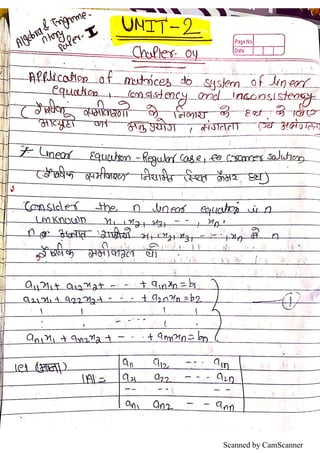 Algebra & Trigonometry
Paper-I
UNIT-2
Page No
Date
Chapter 04
Application of matrices to system of linear
equation, consistency and inconsistency
(रैखिक समीकरणों के निकाय के हल के लिए
आव्यूहों का अनुप्रयोग, संगतता एवं
* Linear Equation - Regular Case, cramer solution
(रैखिक समीकरण नियमित स्थिति क्रैमर हल)
Consider the n linear equation is n
unknown x1, x2, x3, - - -, xn.
n अज्ञात राशियों x1, x2, x3, - - -, xn में n
रैखिक समीकरण
a11x1 + a12x2 + - - - + a1nxn = b1
a21x1 + a22x2 + - - - + a2nxn = b2
①
an1x1 + an2x2 + - - - + annxn = bn
let (माना)
|A| =
a11 a12 - - - a1n
a21 a22 - - - a2n
-- -- - --
an1 an2 -- - ann
Scanned by CamScanner